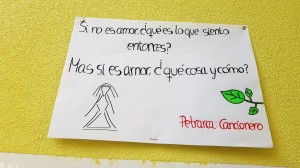 Si no es amor, ¿qué es lo que siento
entonces?
Mas si es amor, ¿qué cosa y cómo?
Petrarca: Cancionero